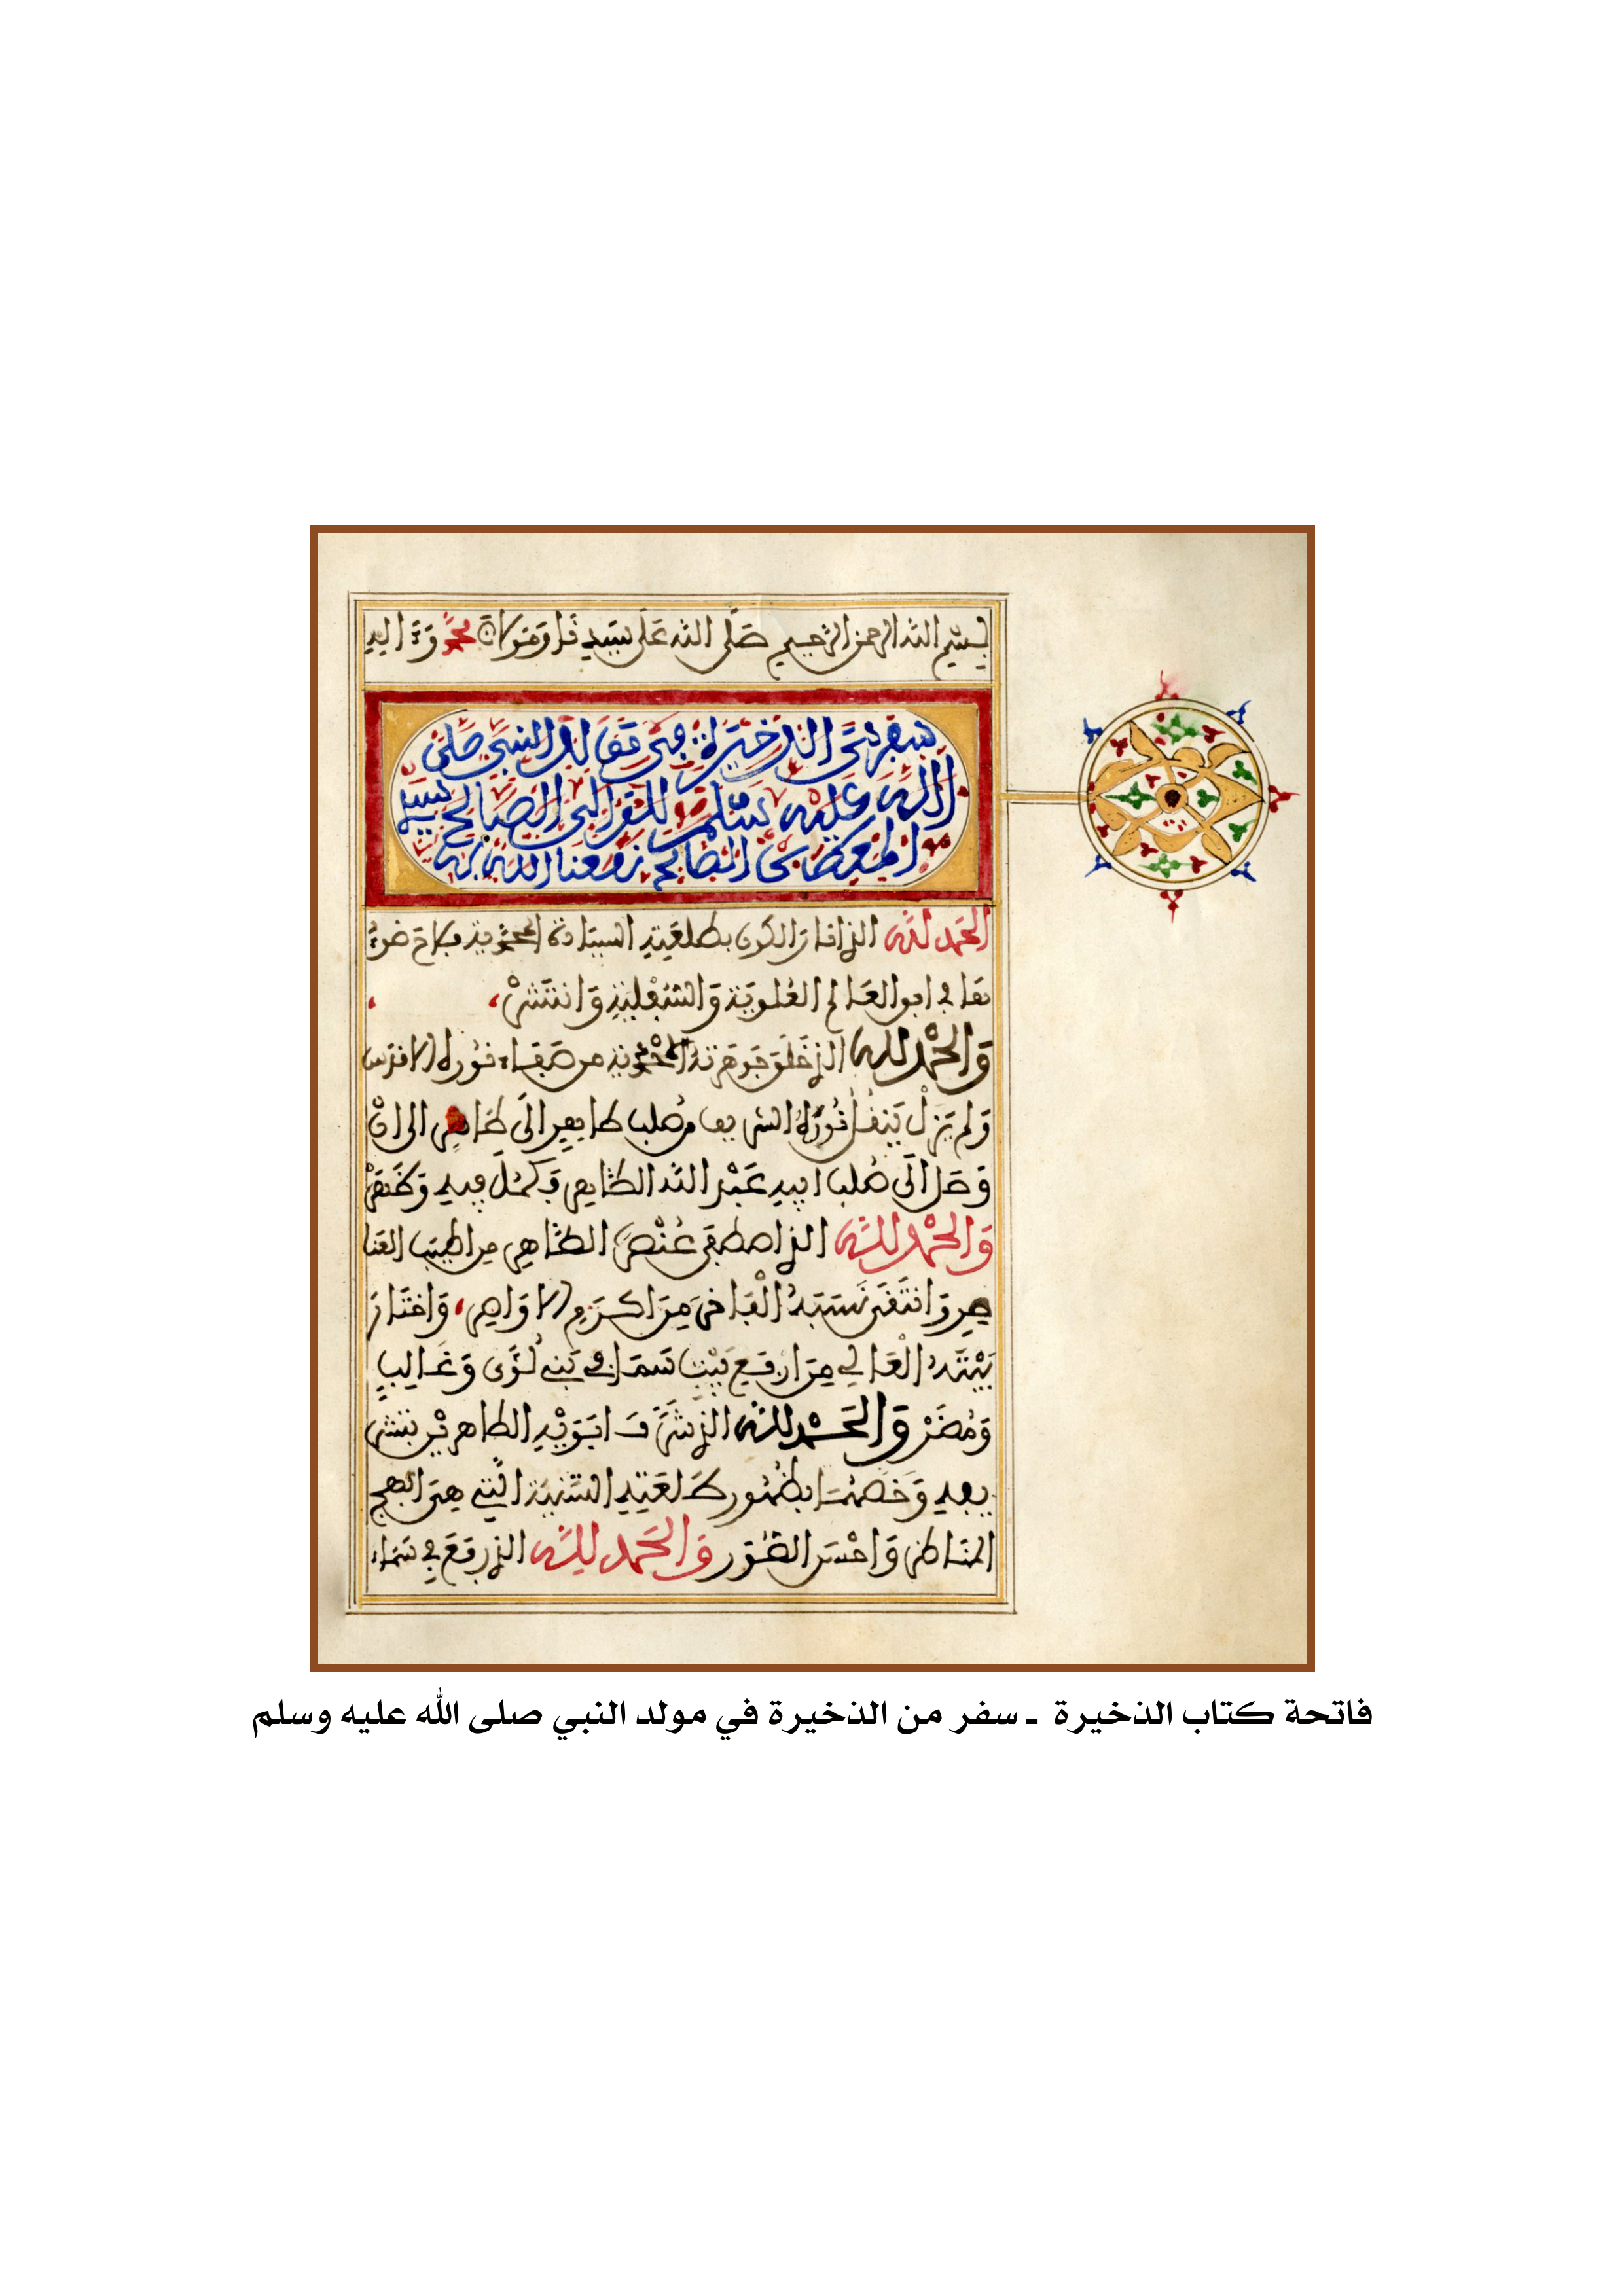 بسم الله الرحمن الرحيم صلى الله على سيدنا ومولانا محمد وءاله
سفر من الذخيرة في مولد النبي صلى
الله عليه وسلم للقراني الصالح سيدي
المعطى بن الصالح نفعنا الله به
الحمد لله الذي انار الكون بطلعته السيادة المحمدية ولاح ضوء
ها في العالم العلوية والسفلية وانتشر
والحمد لله الذي خلق جوهرته المحمدية من صفاء نوره الاقدس
ولم يزل ينقل نوره الشريف من صلب طاهر الى طاهر الى ان
وصل الى صلب ابيه عبد الله الطاهر وكمل فيه وظهر
والحمد لله الذي اصطفى عنصره الطاهر من اطيب العنا
صر وانتقى نسبه الفاخر من اكرم الاواصر، واختار
بيته العالي من ارفع بيت سما في بني لؤي وغالب
ومضر والحمد لله الذي شرف ابويه الطاهرين بتشر
يفه وخصهما بظهور طلعته السنية التي هي ابهج
المناظر واحسن الصور والحمد لله الذي رفع في سماء
فاتحة كتاب الذخيرة ـ سفر من الذخيرة في مولد النبي صلى الله عليه وسلم